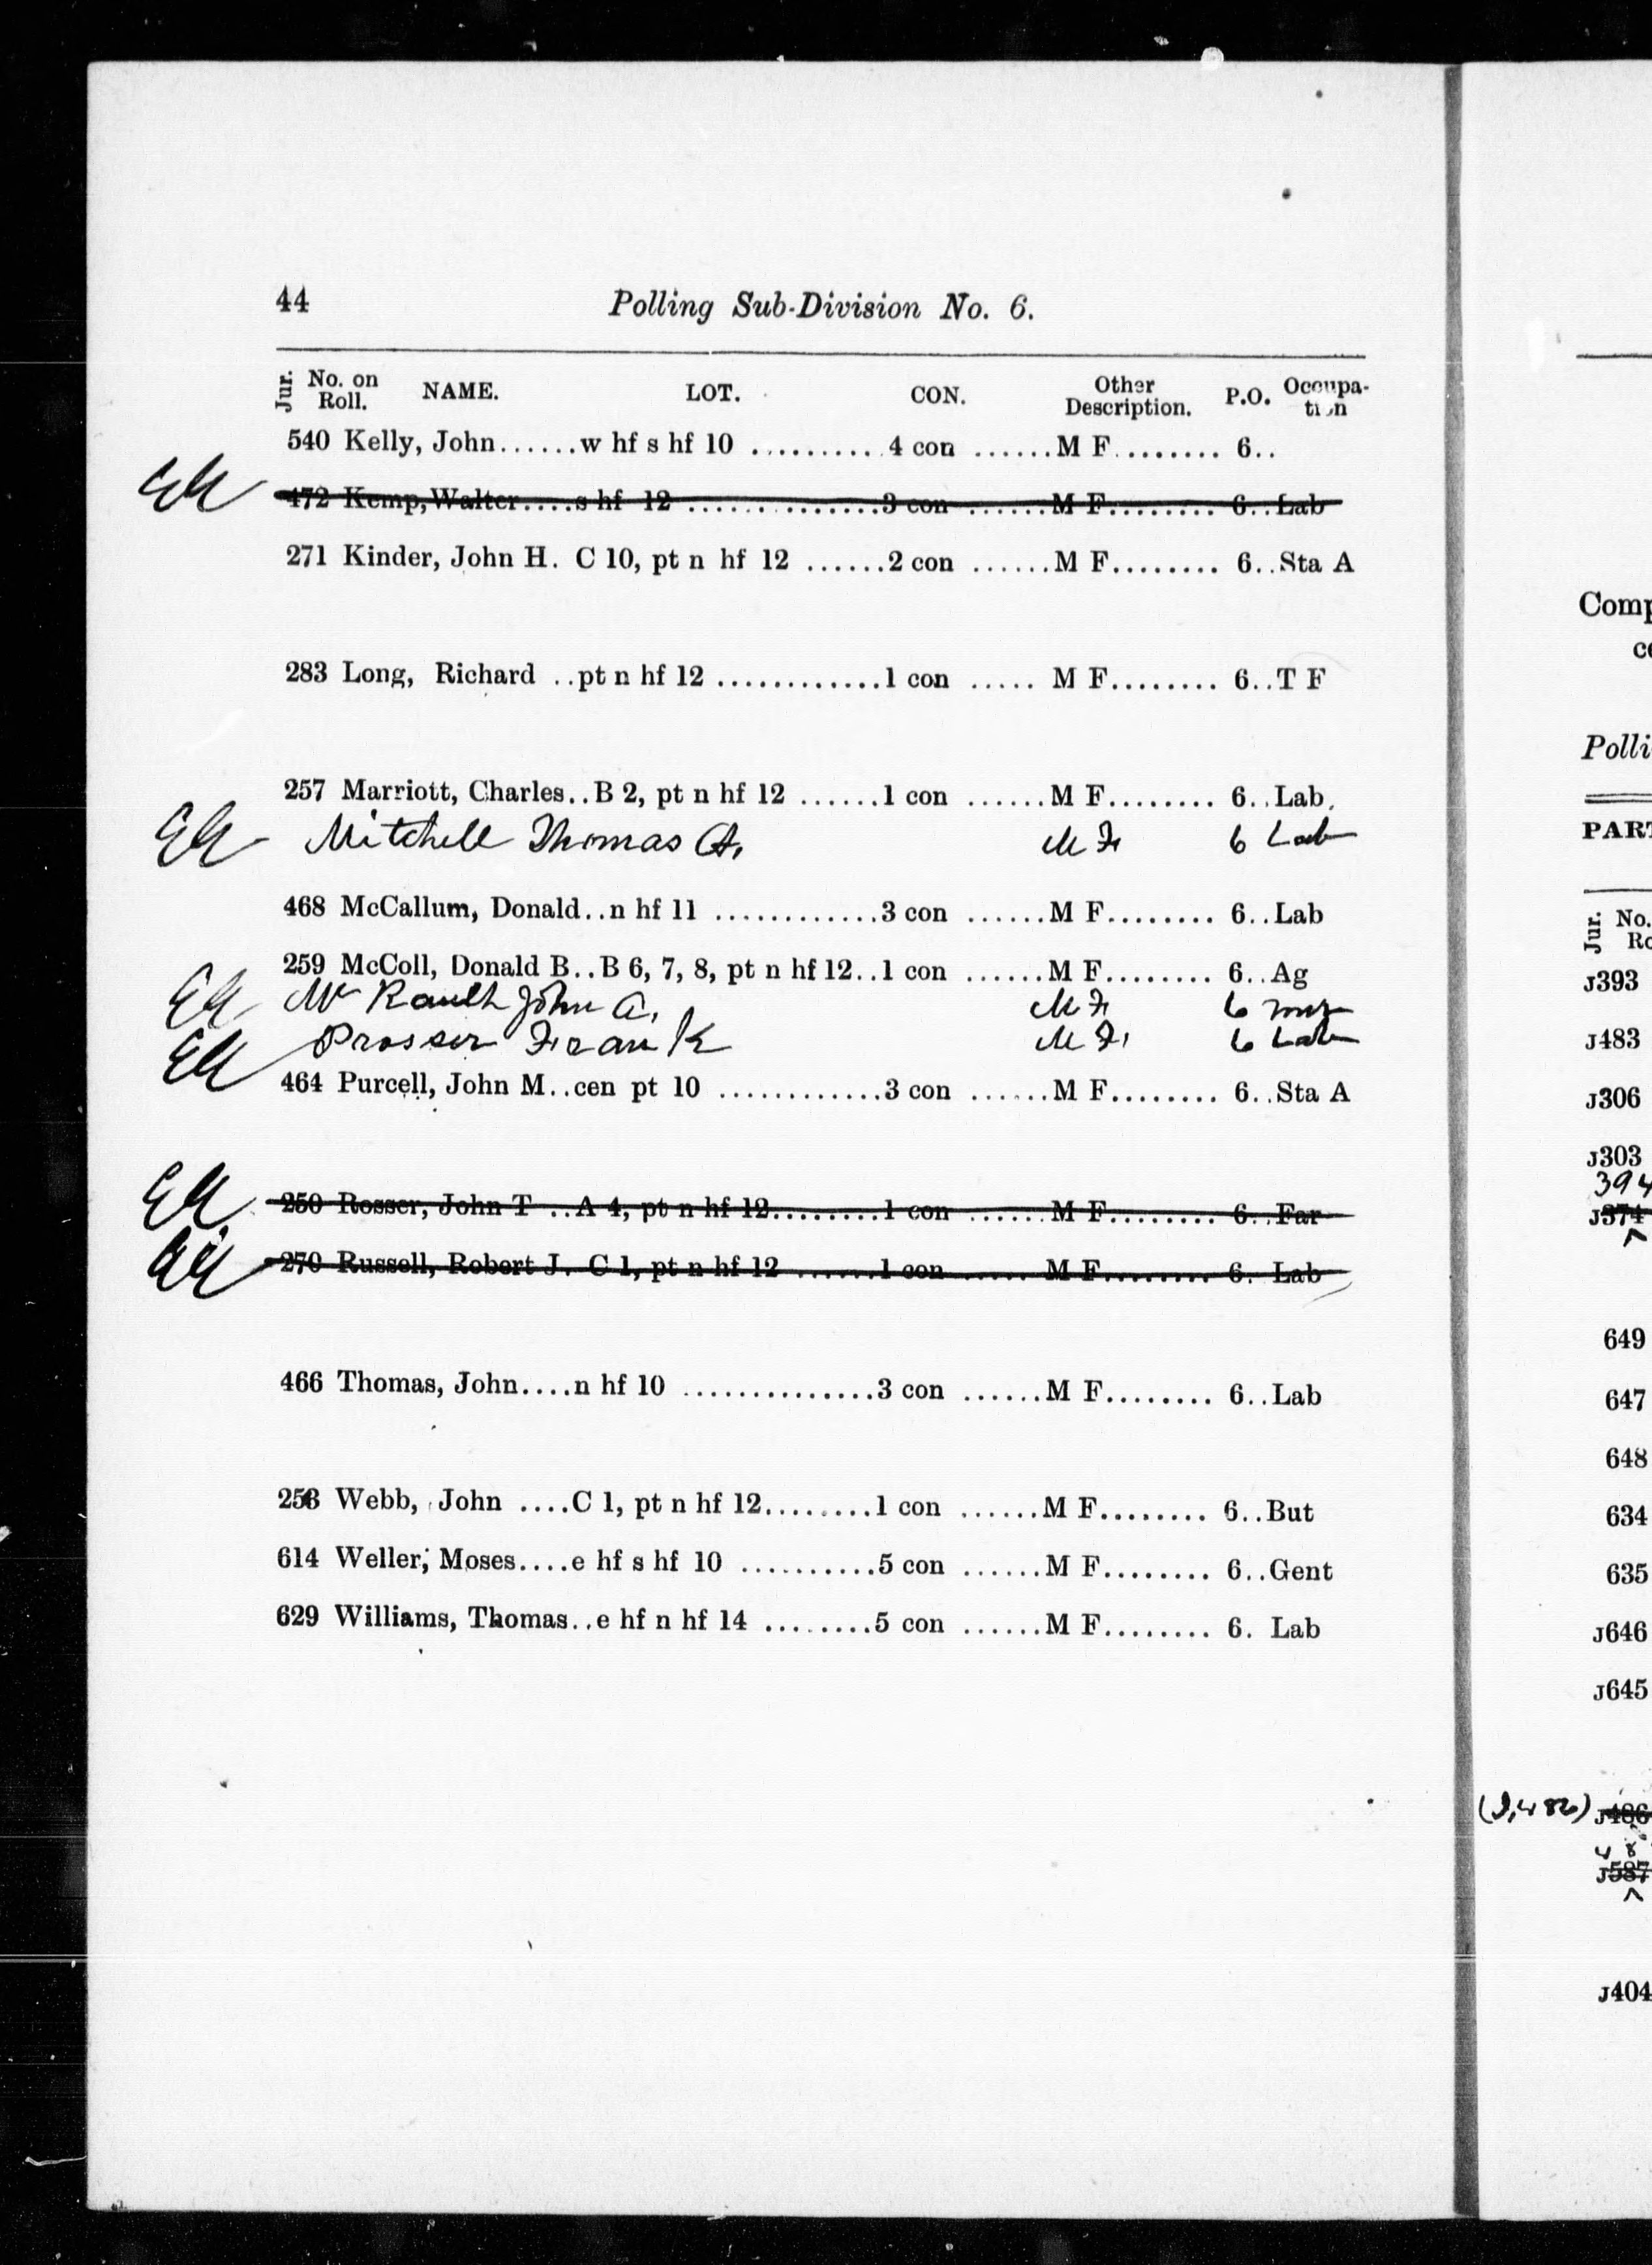 44 Polling Sub-Division No. 6.
Jur. No. on Roll. NAME. LOT. CON. Other Description. P.O. Occupation
540 Kelly, John......w hf s hf 10 ..........4 con ......M F........ 6..
472 Kemp, Walter....s hf 12 ...............3 con ......M F........ 6..Lab
271 Kinder, John H. C 10, pt n hf 12 ......2 con ......M F........ 6..Sta A
283 Long, Richard ..pt n hf 12 ............1 con ..... M F........ 6..T F
257 Marriott, Charles..B 2, pt n hf 12 ......1 con ......M F........ 6..Lab.
Mitchell Thomas A. M F 6 Lab
468 McCallum, Donald..n hf 11 ............3 con ......M F........ 6..Lab
259 McColl, Donald B..B 6, 7, 8, pt n hf 12..1 con ......M F........ 6..Ag
John A. M F 6
Prosser Frank M F 6 Lab
464 Purcell, John M..cen pt 10 ............3 con ......M F........ 6..Sta A
250 Rosser, John T ..A 4, pt n hf 12.........1 con ......M F........ 6..Far
270 Russell, Robert J. C 1, pt n hf 12 ......1 con ..... M F........ 6. Lab
466 Thomas, John....n hf 10 ..............3 con ......M F........ 6..Lab
Webb, John ....C 1, pt n hf 12........1 con ......M F........ 6..But
614 Weller, Moses....e hf s hf 10 ..........5 con ......M F........ 6..Gent
629 Williams, Thomas..e hf n hf 14 ........5 con ......M F........ 6. Lab
Jur. No.
J393
J483
J306
J303
394
J374
649
647
648
634
635
J646
J645
J486
J587
J404